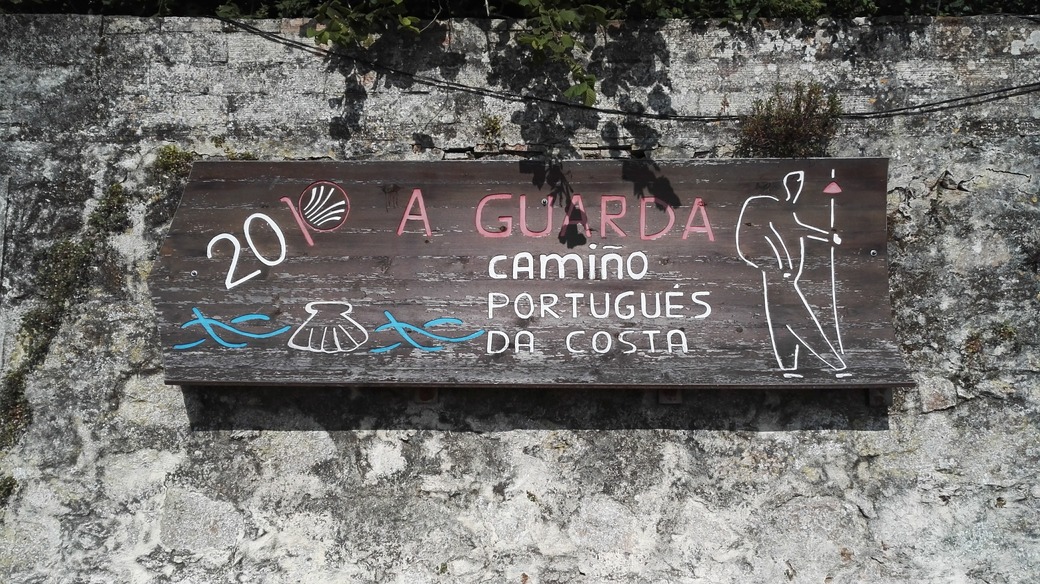 2010
A GUARDA
CAMIÑO
PORTUGUÉS
DA COSTA